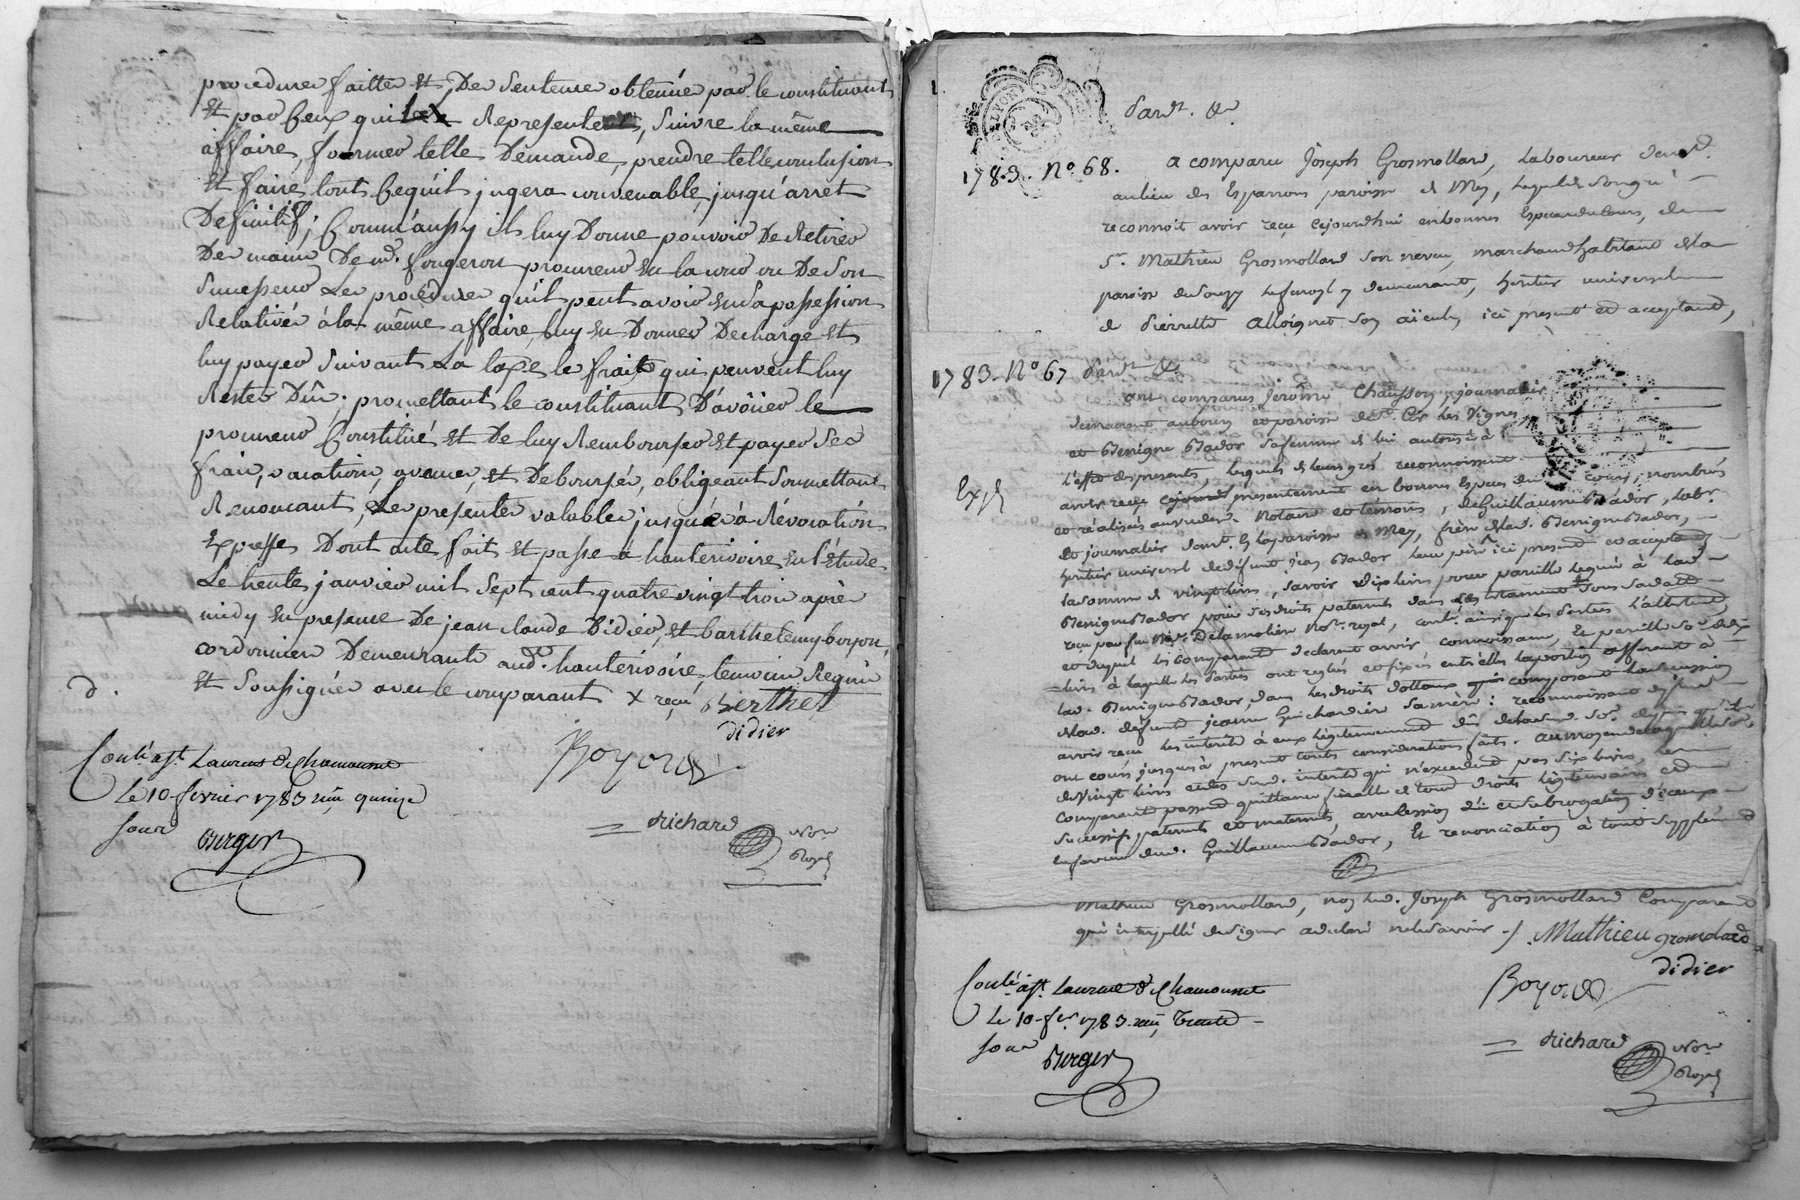 procedures faittes et De Sentence obtenüe par le constituant
et par Ceux qui Representent, Suivre la même
affaire, former telle Demande, prendre telle conclusion
et faire tout Cequil jugera convenable, jusqu'arret
Definitif; Comm'aussy il luy Donne pouvoir De Retirer
Des mains De mr. fougeron procureur en la cour ou De Son
Successeur Les procedures qu'il peut avoir en sa possession
Relatives à la même affaire, luy en Donner Decharge et
luy payer Suivant La taxe les frais qui peuvent luy
Rester Dûs; promettant le constituant D'avoüer le
procureur Constitué, et De luy Rembourser et payer Ses
frais, vacations, avances, et Deboursés, obligeant Soumettant
Renoncant, Les presentes valables jusqu'à Révocation
Expresse Dont acte fait et passé à hauterivoire en l'étude
Le trente janvier mil Sept cent quatre vingt trois après
midy en presence De jean claude Didier, et barthelemy boyon,
cordonnier Demeurants aud. hauterivoire temoins Requis
et Soussignés avec le comparant x reçu Berthet
D.
didier
Boyon
Conlé à St. Laurent de Chamousset
Le 10 fevrier 1783 reçu quinze
sous
Berger
= Richard
Nore
Royal
LYON
Pardt. &r
1783. No 68. a comparu Joseph Grosmollard, Laboureur demt.
au lieu des Esparrons paroisse de Mey, Lequel de Son gré
reconnoit avoir reçu cejourdhui en bonnes Especes de cours, de
Sr. Mathieu Grosmollard Son neveu, marchand habitant de la
paroisse de Souzy y demeurant, héritier universel
de Pierrette Alloignet Son aïeule, ici present et acceptant,
1783. No 67 Pardt &r
ont comparus Jerôme Chausson, journalier
demeurant au bourg et paroisse de St. Cir Les Vignes,
et Benigne Bador Sa femme de lui autorisée à
L'effet des presentes, Lesquels de leurs grés reconnoissent
Expé
avoir reçu presentement en bonnes Especes de cours, nombrés
et réalisés au vu des Notaire et témoins, de Guillaume Bador, Labr.
et journalier demt. en La paroisse de Mey, frère de lad. Benigne Bador,
héritier universel de défunt jean Bador Leur père ici present et acceptant,
la somme de vingt livres, Savoir dix livres pour pareille Leguée à lad.
Benigne Bador pour Ses droits paternels dans Le testament Sous Sa date
reçu par feu Me. Delamolière Nore. royal, conté. ainsi que Les Parties L'attestent,
et duquel Les Comparants declarent avoir connoissance, Et pareille Soe. de dix
livres à laquelle Les Parties ont reglés et fixés entr'elles la portion afferant à
lad. Benigne Bador, dans Les droits dottaux qui composent La Succession
de lad. défunte jeanne Guichardier Sa mère: reconnoissant de même
avoir reçu Les interets à eux Legitimement dûs de lad. Soe.
ont cours jusqu'à present toutes considerations faites. au moyen
de Vingt livres et des Sud. interets qui n'excedent pas Six livres, Les
Comparants passent quittance finalle de tous droits Legitimaires et
Successifs paternels et maternels, avec cession d'iceux et Subrogation
en faveur dud. Guillaume Bador, Et renonciation à tout Supplément
Mathieu Grosmollard, non led. Joseph Grosmollard Comparant
qui interpellé de Signer a declaré ne le Savoir ./. Mathieu gromolard
didier
Boyon
Conlé à St. Laurent de Chamousset
Le 10 fer. 1783 reçu Trente
sous
Berger
= Richard
Nore
Royal